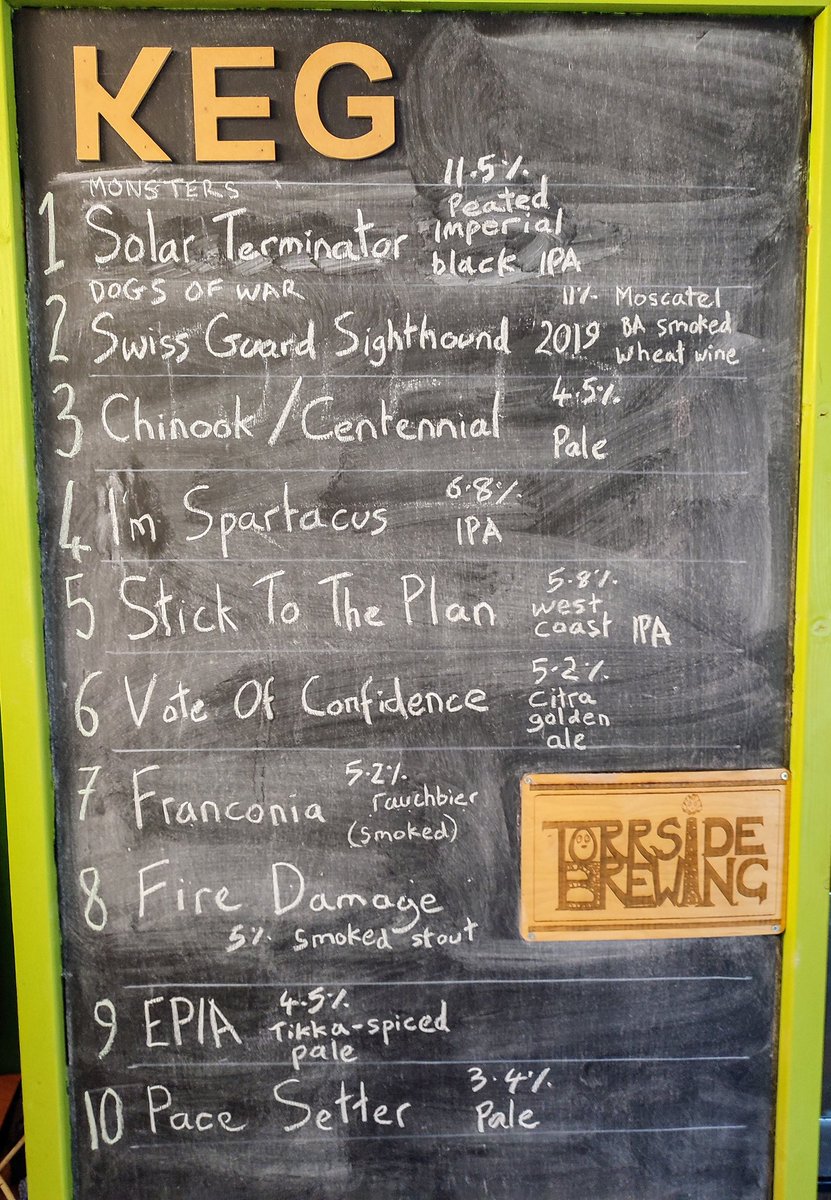 KEG
MONSTERS
1 Solar Terminator 11.5%
Peated
Imperial
black IPA
DOGS OF WAR
2 Swiss Guard Sighthound 2019 11% Moscatel
BA smoked
wheat wine
3 Chinook/Centennial 4.5%
Pale
4 I'm Spartacus 6.8%
IPA
5 Stick To The Plan 5.8%
west
coast IPA
6 Vote Of Confidence 5.2%
Citra
golden
ale
7 Franconia 5.2%
rauchbier
(smoked)
TORRSIDE
BREWING
8 Fire Damage
5% smoked stout
9 EPIA 4.5%
Tikka-spiced
pale
10 Pace Setter 3.4%
Pale